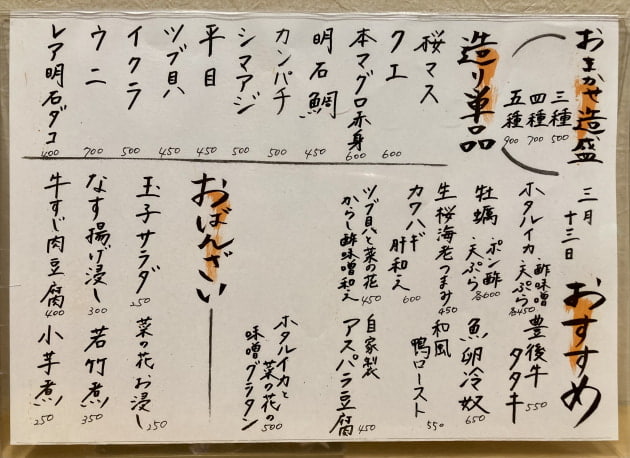 おまかせ造盛
三種 500
四種 700
五種 900
造り単品
桜マス
クエ 600
本マグロ赤身 600
明石鯛 450
カンパチ 500
シマアジ 500
平目 450
ツブ貝 450
イクラ 500
ウニ 700
レア明石ダコ 400
三月
十三日
おすすめ
ホタルイカ 酢味噌
天ぷら 各450
豊後牛
タタキ 550
牡蠣 ポン酢
天ぷら 各600
魚卵冷奴 650
生桜海老つまみ 450
和風
鴨ロースト 550
カワハギ
肝和え 600
ツブ貝と菜の花
からし酢味噌和え 450
自家製
アスパラ豆腐 450
ホタルイカと
菜の花の
味噌グラタン 500
おばんざい
玉子サラダ 250
菜の花お浸し 250
なす揚げ浸し 300
若竹煮 350
牛すじ肉豆腐 400
小芋煮 250